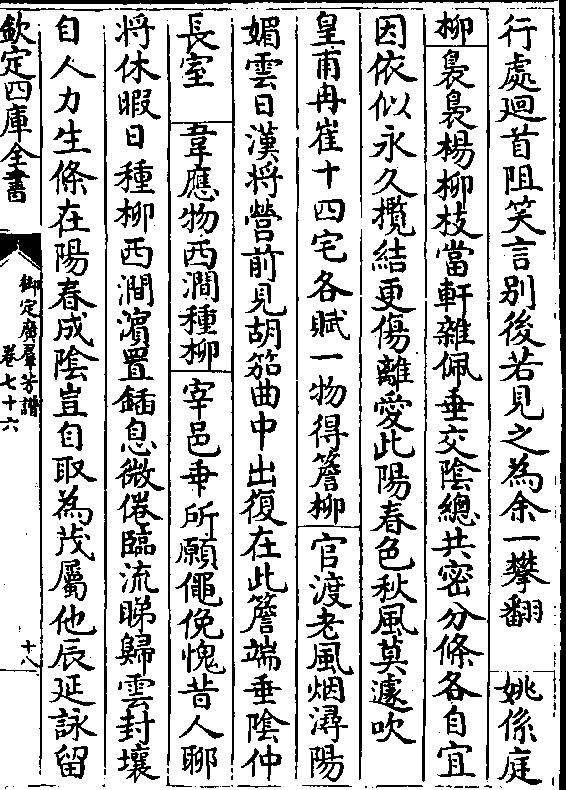 行處迴首阻笑言別後若見之為余一攀翻　姚係庭
柳　裊裊楊柳枝當軒雜佩垂交陰總共密分條各自宜
因依似永久攬結更傷離愛此陽春色秋風莫遽吹
皇甫冉崔十四宅各賦一物得簷柳　官渡老風烟潯陽
媚雲日漢將營前見胡笳曲中出復在此簷端垂陰仲
長室　韋應物西澗種柳　宰邑乖所願僶俛愧昔人聊
將休暇日種柳西澗濵置鍤息微倦臨流睇歸雲封壤
自人力生條在陽春成陰豈自取為茂屬他辰延詠留
欽定四庫全書
御定廣羣芳譜
卷七十六
十八